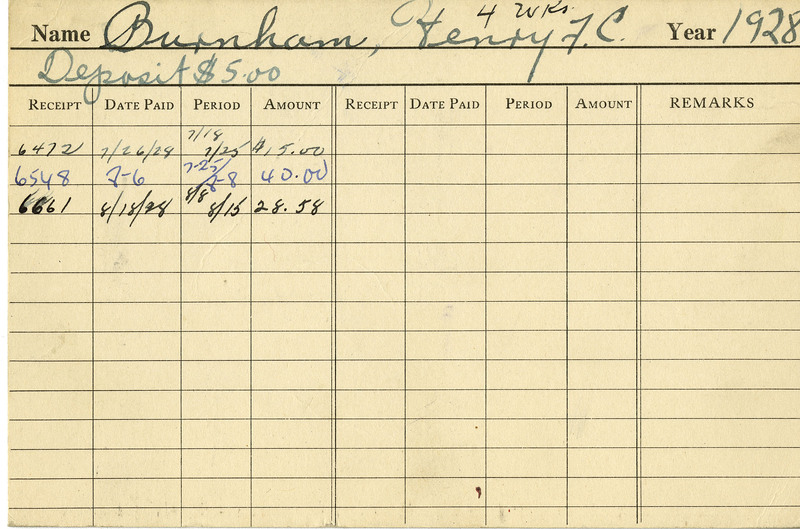 4 wks.
Name Burnham, Henry F. C. Year 1928
Deposit $5.00
RECEIPT DATE PAID PERIOD AMOUNT RECEIPT DATE PAID PERIOD AMOUNT REMARKS
7/18
6472 7/26/28 7/25 $15.00
6548 8-6 7-25/8-8 40.00
8/8
6661 8/18/28 8/15 28.58